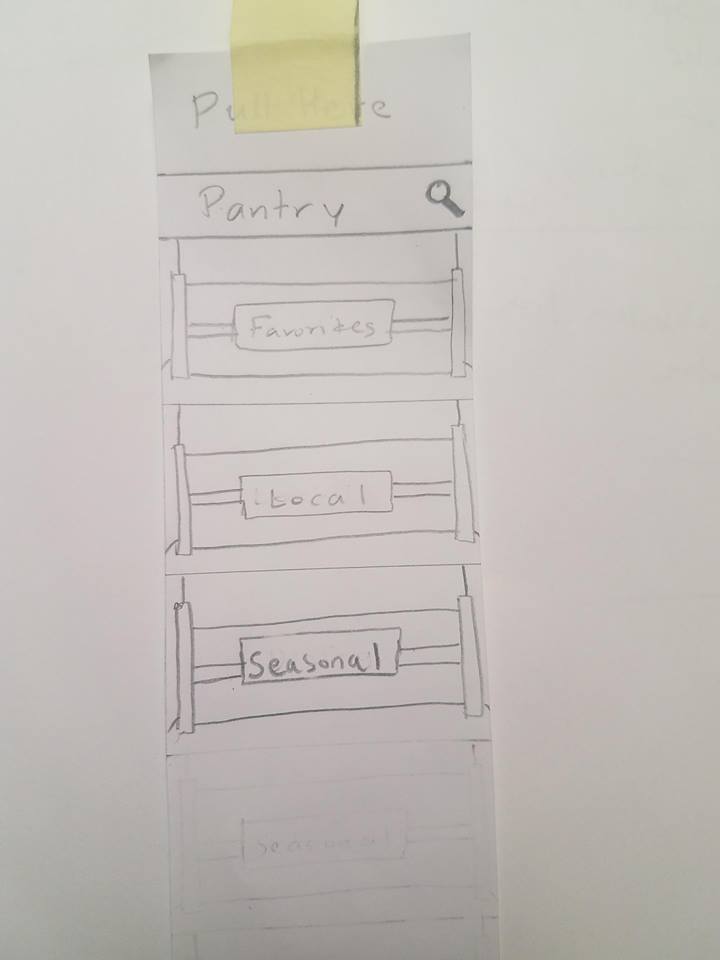 Pull Here
Pantry
Favorites
Local
Seasonal
Seasonal